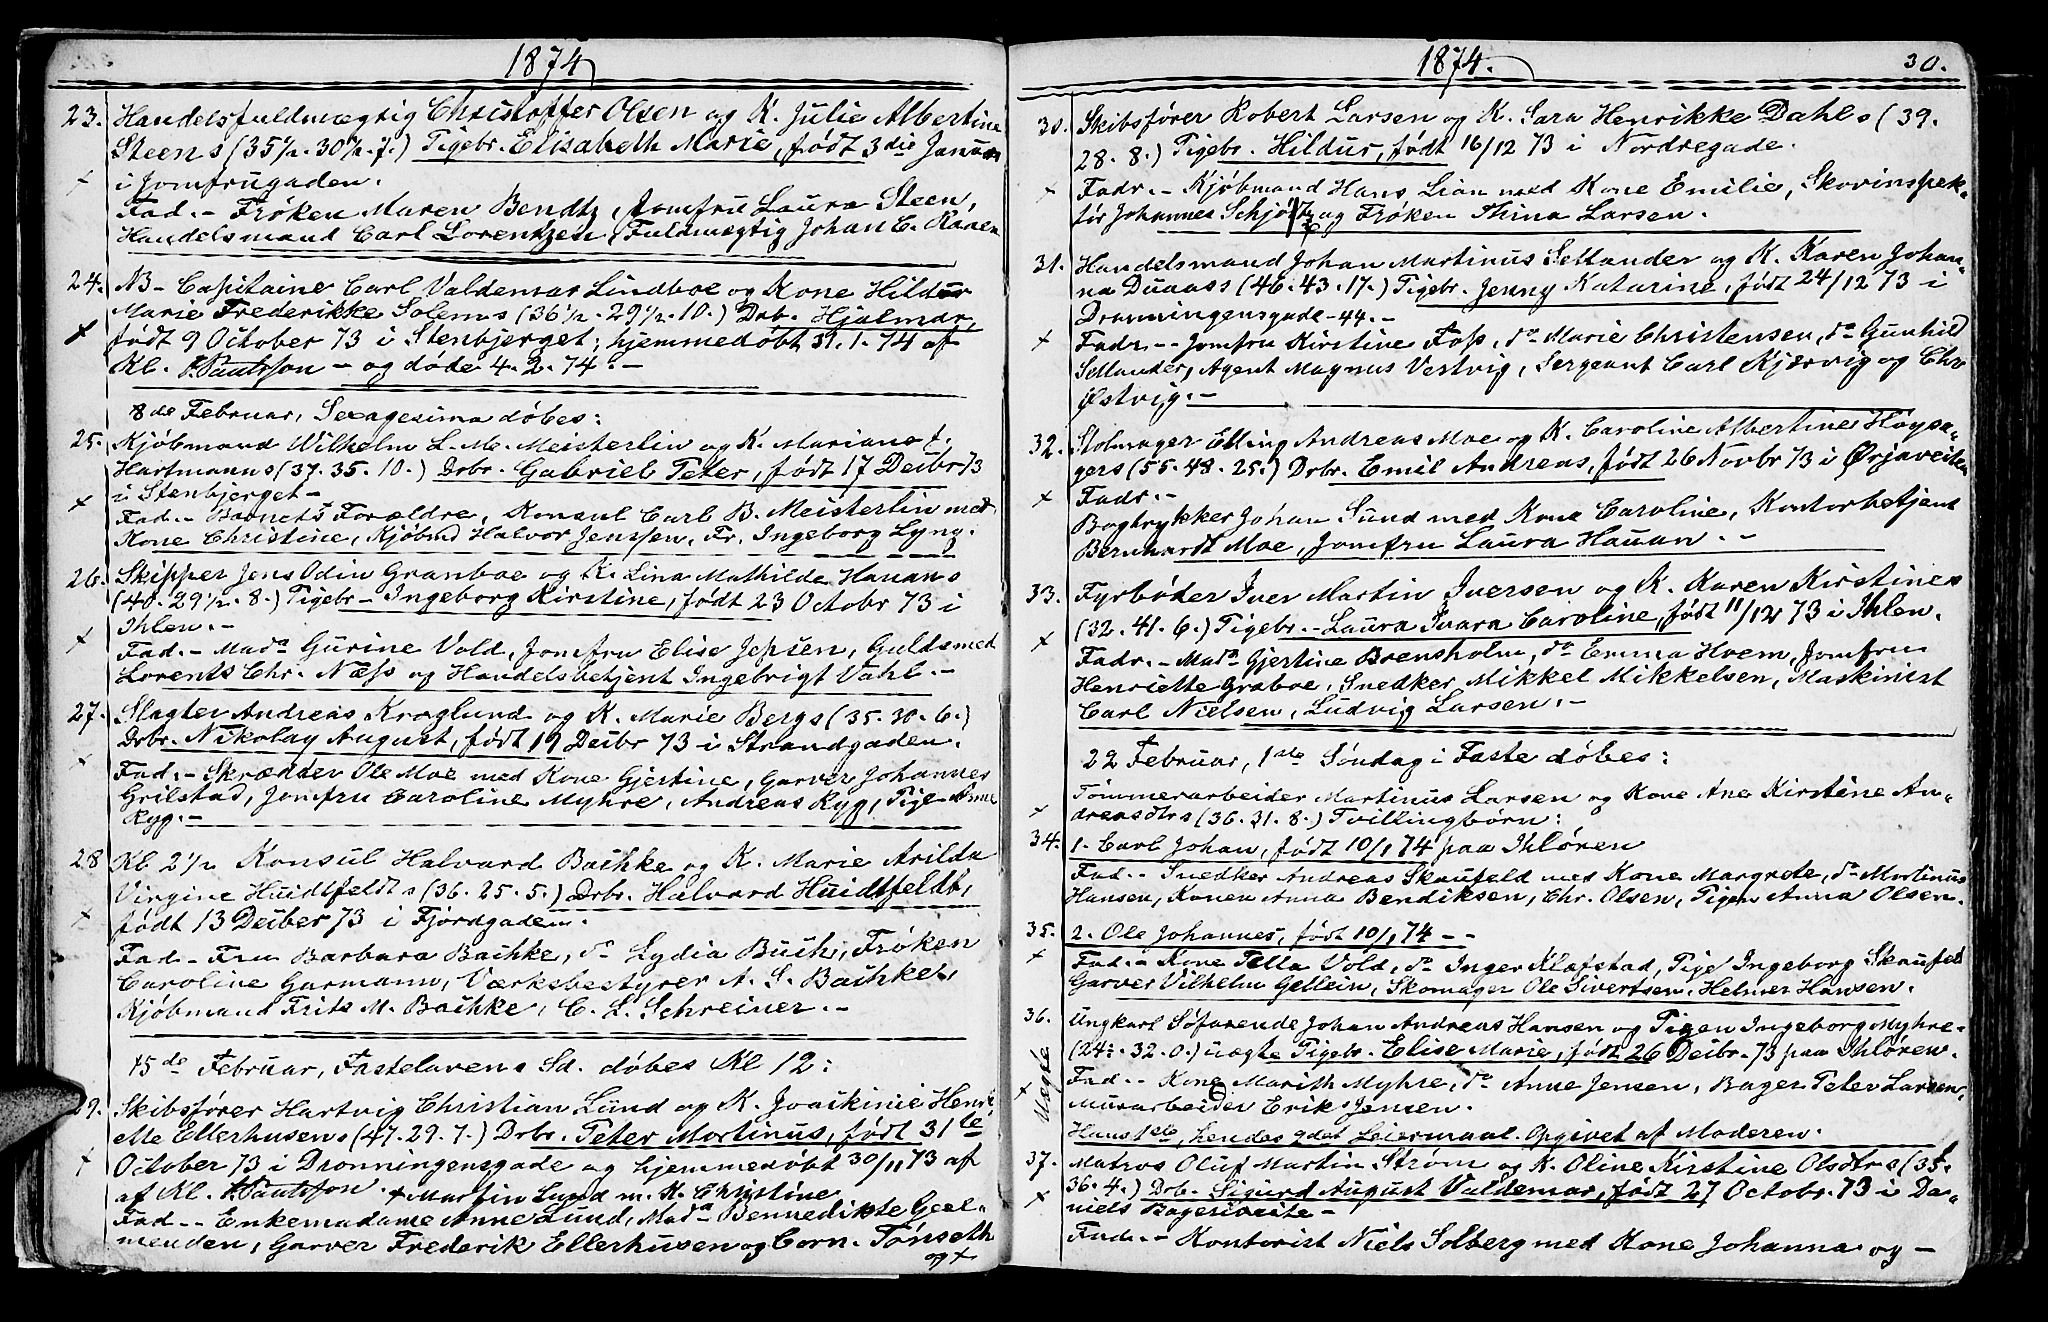 1874
23. Handelsfuldmægtig Christoffer Olsen og K. Julie Albertine
Steens (35½. 30½. 7.) Tigebr. Elisabeth Marie, født 3die Januar
i Jomfrugaden.
Fad. - Frøken Maren Bendtz, Jomfru Laura Steen,
Handelsmand Carl Lorentzen, Fuldmægtig Johan C.
24. NB - Capitaine Carl Valdemar Lindboe og Kone Hildur
Marie Frederikke Solems (36½. 29½. 10.) Drb. Hjalmar,
født 9 October 73 i Stenbjerget; hjemmedøbt 31. 1. 74 af
Kl. - og døde 4. 2. 74. -
8de Februar, Sexagesima døbes:
25. Kjøbmand Wilhelm L. M. Meisterlin og K. Mariane F.
Hartmanns (37. 35. 10.) Drbr. Gabriel Peter, født 17 Deibr 73
i Stenbjerget -
Fad. - Barnets Forældre, Konsul Carl B. Meisterlin med
Kone Christine, Kjøbmd Halvor Jenssen, Fr. Ingeborg Lyng.
26. Skipper Jens Odin Granboe og K. Lina Mathilde Hauans
(40. 29½. 8.) Tigebr - Ingeborg Kirstine, født 23 Octobr 73 i
Ihlen. -
Fad. - Mada Gurine Vold, Jomfru Elise Jepsen, Guldsmed
Lorents Chr. Næss og Handelsbetjent Ingebrigt Vahl. -
27. Slagter Andreas Kroglund og K. Marie Bergs (35. 30. 6.)
Drbr. Nikolay August, født 19 Deibr 73 i Strandgaden.
Fad. - Skrædder Ole Moe med Kone Gjertine, Garver Johannes
Grilstad, Jomfru Caroline Myhre, Andreas Ryg, Pige Anne
Ryg. -
28 Kl. 2½ Konsul Halvard Bachke og K. Marie Arilda
Virgine Huidtfeldts (36. 25. 5.) Drbr. Halvard Huidtfeldt,
født 13 Deiber 73 i Fjordgaden.
Fad - Fru Barbara Bachke, do Lydia Buch, Frøken
Caroline Garmann, Værksbestyrer A. S. Bachke,
Kjøbmand Frits M. Bachke, C. L. Schreiner. -
15de Februar, Fastelavens Sd. døbes Kl 12:
29. Skibsfører Hartvig Christian Lund og K. Joackinie Henri-
ette Ellerhusens (47. 29. 7.) Drbr. Peter Martinus, født 31te
October 73 i Dronningensgade og hjemmedøbt 30/11 73 af
af Kl. + Martin Lund m. K. Christine
Fad - - Enkemadame Anne Lund, Mada Bennedikte Geel-
menden, Garver Frederik Ellerhusen og Corn. Tønseth
og +
1874. 30.
30. Skibsfører Robert Larsen og K. Sara Henrikke Dahls (39.
28. 8.) Tigebr. Hildur, født 16/12 73 i Nordregade.
Fadr. - Kjøbmand Hans Lian med Kone Emilie, Skovinspek-
tør Johannes Schjøtz og Frøken Thina Larsen.
31. Handelsmand Johan Martinus Setlander og K. Karen Johan-
na Duaass (46. 43. 17.) Tigebr. Jenny Katarine, født 24/12 73 i
Dronningensgade - 44. -
Fadr. - - Jomfru Kirstine Foss, do Marie Christensen, do Gunhild
Setlander, Agent Magnus Vestvig, Sergeant Carl Kjærvig og Chr
Østvig. -
32. Stolmager Elling Andreas Moe og K. Caroline Albertine Høysa-
gers (55. 48. 25.) Drbr. Emil Andreas, født 26 Novbr 73 i Ørjaveiten
Fadr. -
Bogtrykker Johan Sund med Kone Caroline, Kontorbetjent
Bernhardt Moe, Jomfru Laura Hauan. -
33. Fyrbøder Iver Martin Iversen og K. Karen Kirstines
(32. 41. 6.) Tigebr. - Laura Caroline, født 11/12 73 i Ihlen.
Fadr. - Mada Gjertine Brensholm, do Emma Hvem, Jomfru
Henriette Graboe, Snedker Mikkel Mikkelsen, Maskinist
Carl Nielsen, Ludvig Larsen. -
22 Februar, 1ste Søndag i Faste døbes:
Tømmerarbeider Martinus Larsen og Kone Ane Kirstine An-
dreasdtrs (36. 31. 8.) Tvillingbørn:
34. 1. Carl Johan, født 10/1 74 paa Ihløren
Fad. - Snedker Andreas Skaufeld med Kone Margrete, do Martinus
Hansen, Konen Anna Bendiksen, Chr. Olsen, Pigen Anna Olsen.
35. 2. Ole Johannes, født 10/1 74 - -
Fad. - Kone Pella Vold, do Inger Klefstad, Pige Ingeborg Skaufeld
Garver Vilhelm Gellein, Skomager Ole Sivertsen, Helmer Hansen.
36. Ungkarl Søfarende Johan Andreas Hansen og Pigen Ingeborg Myhre -
(24. 32. 0.) uægte Pigebr. Elise Marie, født 26 Deibr. 73 paa Ihløren.
Uægte
Fad. - Kone Marith Myhre, do Anne Jensen, Bager Peter Larsen,
Murarbeider Erik Jensen.
Hans 1ste, hendes 2det Leiermaal. Opgivet af Moderen.
37. Matros Oluf Martin Strøm og K. Oline Kirstine Olsdtrs (35.
36. 4.) Drb. Sigurd August Valdemar, født 27 Octobr. 73 i Da-
niels Bageriveite -
Fad. - Kontorist Niels Solberg med Kone Johanna og -